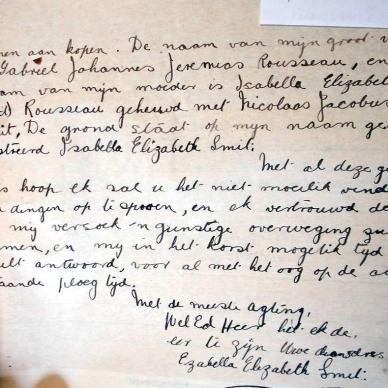 nen aan kopen. De naam van mijn groot v
Gabriel Johannes Jeremias Rousseau, en
am van mijn moeder is Isabella Elizabe
Rousseau gehuwd met Nicolaas Jacobus
it, De grond staat op mijn naam ge
streerd Isabella Elizabeth Smit.
Met al deze g
s hoop ek sal u het niet moeilik vind
dingen op te spooren, en ek vertrouwd de
mij versoek 'n gunstige overweging zu
men, en my in het korst mogelik tyd
ult antwoord, voor al met het oog op de a
aande ploeg tijd.
Met de meeste agting,
Wel Ed Heer het ek de
eer te zijn Uwe
Ezabella Elizabeth Smit.